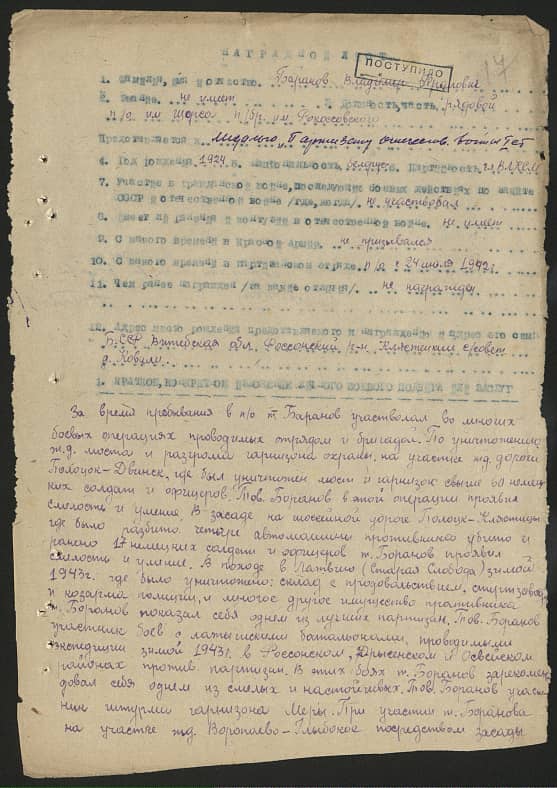 НАГРАДНОЙ ЛИСТ
ПОСТУПИЛО
17
1. Фамилия, имя и отчество. Баранов Владимир
2. Звание. не имеет 3. Должность, часть. рядовой
п/о им Щорса п/бр. им. Рокоссовского
Представляется к медалью, Партизану отечествен. войны
4. Год рождения. 1924. 5. Национальность. белорус 6. Партийность. ВЛКСМ
7. Участие в гражданской войне, последующих боевых действиях по защите
СССР и отечественной войне /где, когда/. не участвовал
8. Имеет ли ранения и контузии в отечественной войне. не имеет
9. С какого времени в Красной Армии. не призывался
10. С какого времени в партизанском отряде. п/о с 24 июля 1942г.
11. Чем ранее награжден /за какие отличия/. не награжден
12. Адрес место рождения представляемого к награждению и адрес его семьи
БССР Витебская обл. Россонский р-н Клястицкий с/совет
д.
1. КРАТКОЕ, КОНКРЕТНОЕ ИЗЛОЖЕНИЕ ЛИЧНОГО БОЕВОГО ПОДВИГА ИЛИ ЗАСЛУГ
За время пребывания в п/о т. Баранов участвовал во многих
боевых операциях проводимых отрядом и бригадой. По уничтожению
ж.д. моста и разгрома гарнизона охраны, на участке ж.д. дороги
Полоцк-Двинск, где был уничтожен мост и гарнизон свыше 60 немец
ких солдат и офицеров. Тов. Баранов в этой операции проявил
смелость и умение. В засаде на шоссейной дороге Полоцк-Клястицы
где было разбито четыре автомашины противника убито и
ранено 17 немецких солдат и офицеров т. Баранов проявил
смелость и умение. В походе в Латвию (Старая Слобода) зимой
1943г. где было уничтожено: склад с продовольствием,
и казарма полиции, и многое другое имущество противника
т. Баранов показал себя одним из лучших партизан. Тов. Баранов
участник боев с латышскими батальонами, проводимыми
экспедиции зимой 1943г. в Россонском, Дрысенском и Освейском
районах против партизан. В этих боях т. Баранов зарекомен
довал себя одним из смелых и настойчивых. Тов. Баранов участ
ник штурма гарнизона Меры. При участии т. Баранова
на участке жд. Воропаево-Глыбокое посредством засады